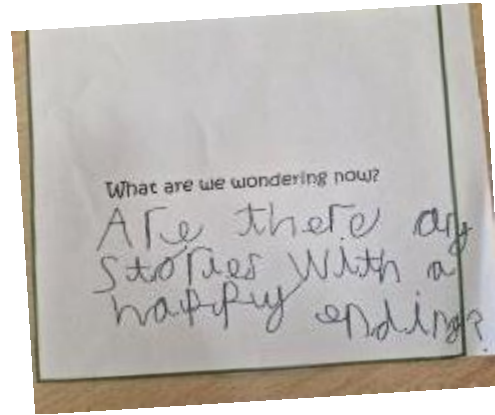 What are we wondering now?
Are there any
stories with a
happy ending?